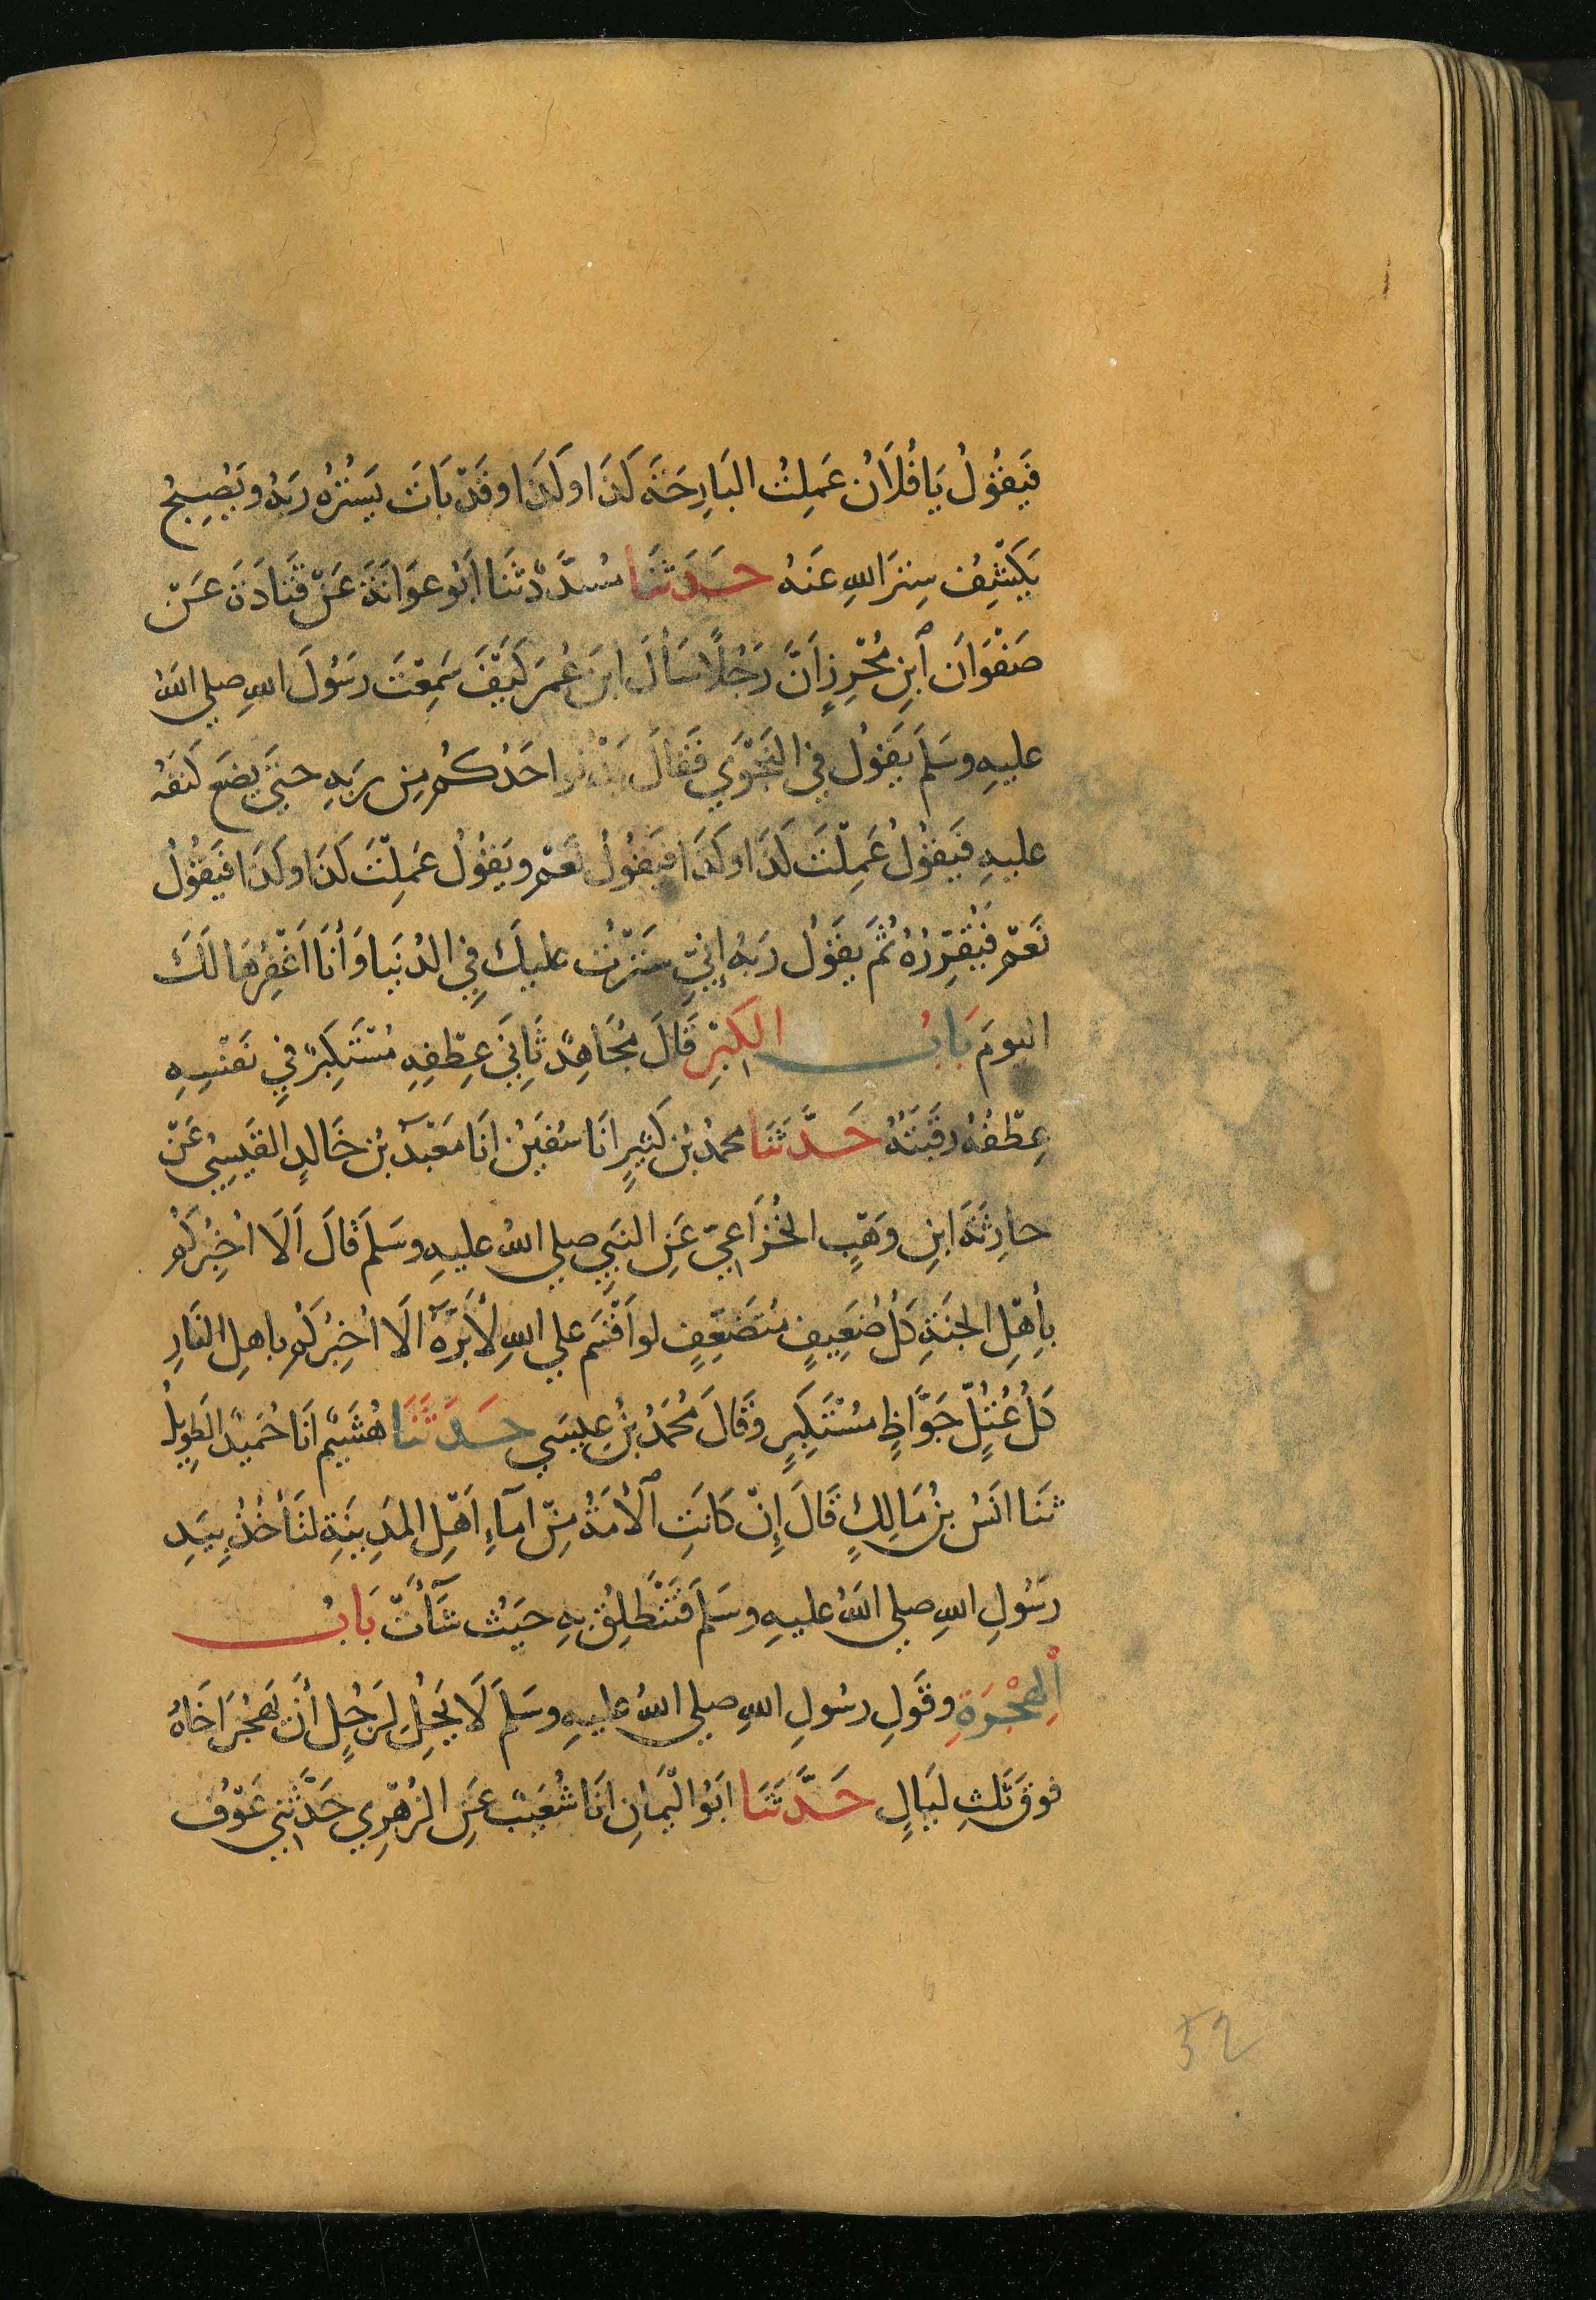 فَيَقُولُ يَا فُلَانُ عَمِلتُ البَارِحَةَ كَذَا وكَذَا وقَدْ بَاتَ يَسْتُرُهُ رَبُهُ ويُصْبِحُ
يَكْشِفُ سِترَ اللهِ عَنهُ حَدَثَنَا مُسَدَّدٌ ثَنَا اَبُو عوَانَةَ عَنْ قَتَادَةَ عَنْ
صَفْوَانَ ٱبنِ مُحْرِزٍ اَنَّ رَجُلًا سَألَ ابنَ عُمَرَ كَيْفَ سَمِعْتَ رَسُولَ اللهِ صلي اللهُ
عليهِ وسَلَمَ يَقُولُ فِي النَجْوَي فَقَالَ يَدْنُو احَدُكُم مِن رَبِهِ حتيَ يضَعَ كَنَفَهُ
عليهِ فَيَقُولُ عَمِلْتَ كَذَا وكَذَا فيَقُولُ نَعَمْ ويَقُولُ عَمِلْتَ كَذَا وكَذَا فيَقُولُ
نَعَمْ فَيُقَرِّرُهُ ثُمَ يقَوُلُ رَبُهُ إنِيِّ سَتَرْتُ عليكَ فِي الدُنيَا وَأنَا اَغْفِرُهَا لَكَ
اليومَ بَابُ الكِبْرِ قَالَ مُجَاهِدٌ ثَانِيَ عِطْفِهِ مُسْتَكبِرٌ فِي نَفْسِهِ
عِطْفُهُ رقَبَتُهُ حَدَّثَنَا محمدُ بنُ كَثيرٍ انَا سُفيَنُ انَا مَعْبَدُ بنُ خَالدٍ القَيسِيُ عَنْ
حارِثَةَ ابنِ وَهْبٍ الخُزَاعِيّ عَنِ النبَيِ صلي اللهُ عليهِ وسَلمَ قَالَ اَلَا اُخبِرُكُم
بأهْلِ الجنَةِ كُلُ ضَعِيفٍ مُتَضَعِّفٍ لو اَقْسَمَ علي اللهِ لَأبَرَّهُ الَا اُخبِرُكُم باهلِ النَارِ
كُلُ عُتُلٍّ جَوَّاظٍ مُسْتَكبِرٍ وقَالَ مُحَمَدُ بنُ عِيسَي حَدَثَنَا هُشَيْمٌ انَا حُمَيدٌ الطَوِيلُ
ثنَا انَسُ بنُ مَالِكٍ قَالَ إِنْ كانَتِ ٱلأمَةُ مِنْ اِمآءِ اَهْلِ المَدِينَةِ لتَأخُذُ بِيَدِ
رَسُولِ اللهِ صلي اللهُ عليهِ وسَلمَ فَتَنْطَلِقُ بِهِ حيَثُ شَآءَتْ بَابُ
اْلهِجْرَةِ وقَولِ رسُولِ اللهِ صلي اللهُ عليهِ وسَلمَ لَا يَحِلُ لرَجُلٍ أَنْ يَهجُرَ اَخَاهُ
فوقَ ثَلثِ لَيَالٍ حَدَّثَنَا ابَوُ اليْمَانِ انَا شُعَيبٌ عَنِ الزُهْرِي حَدَّثَنِي عَوْفُ
52